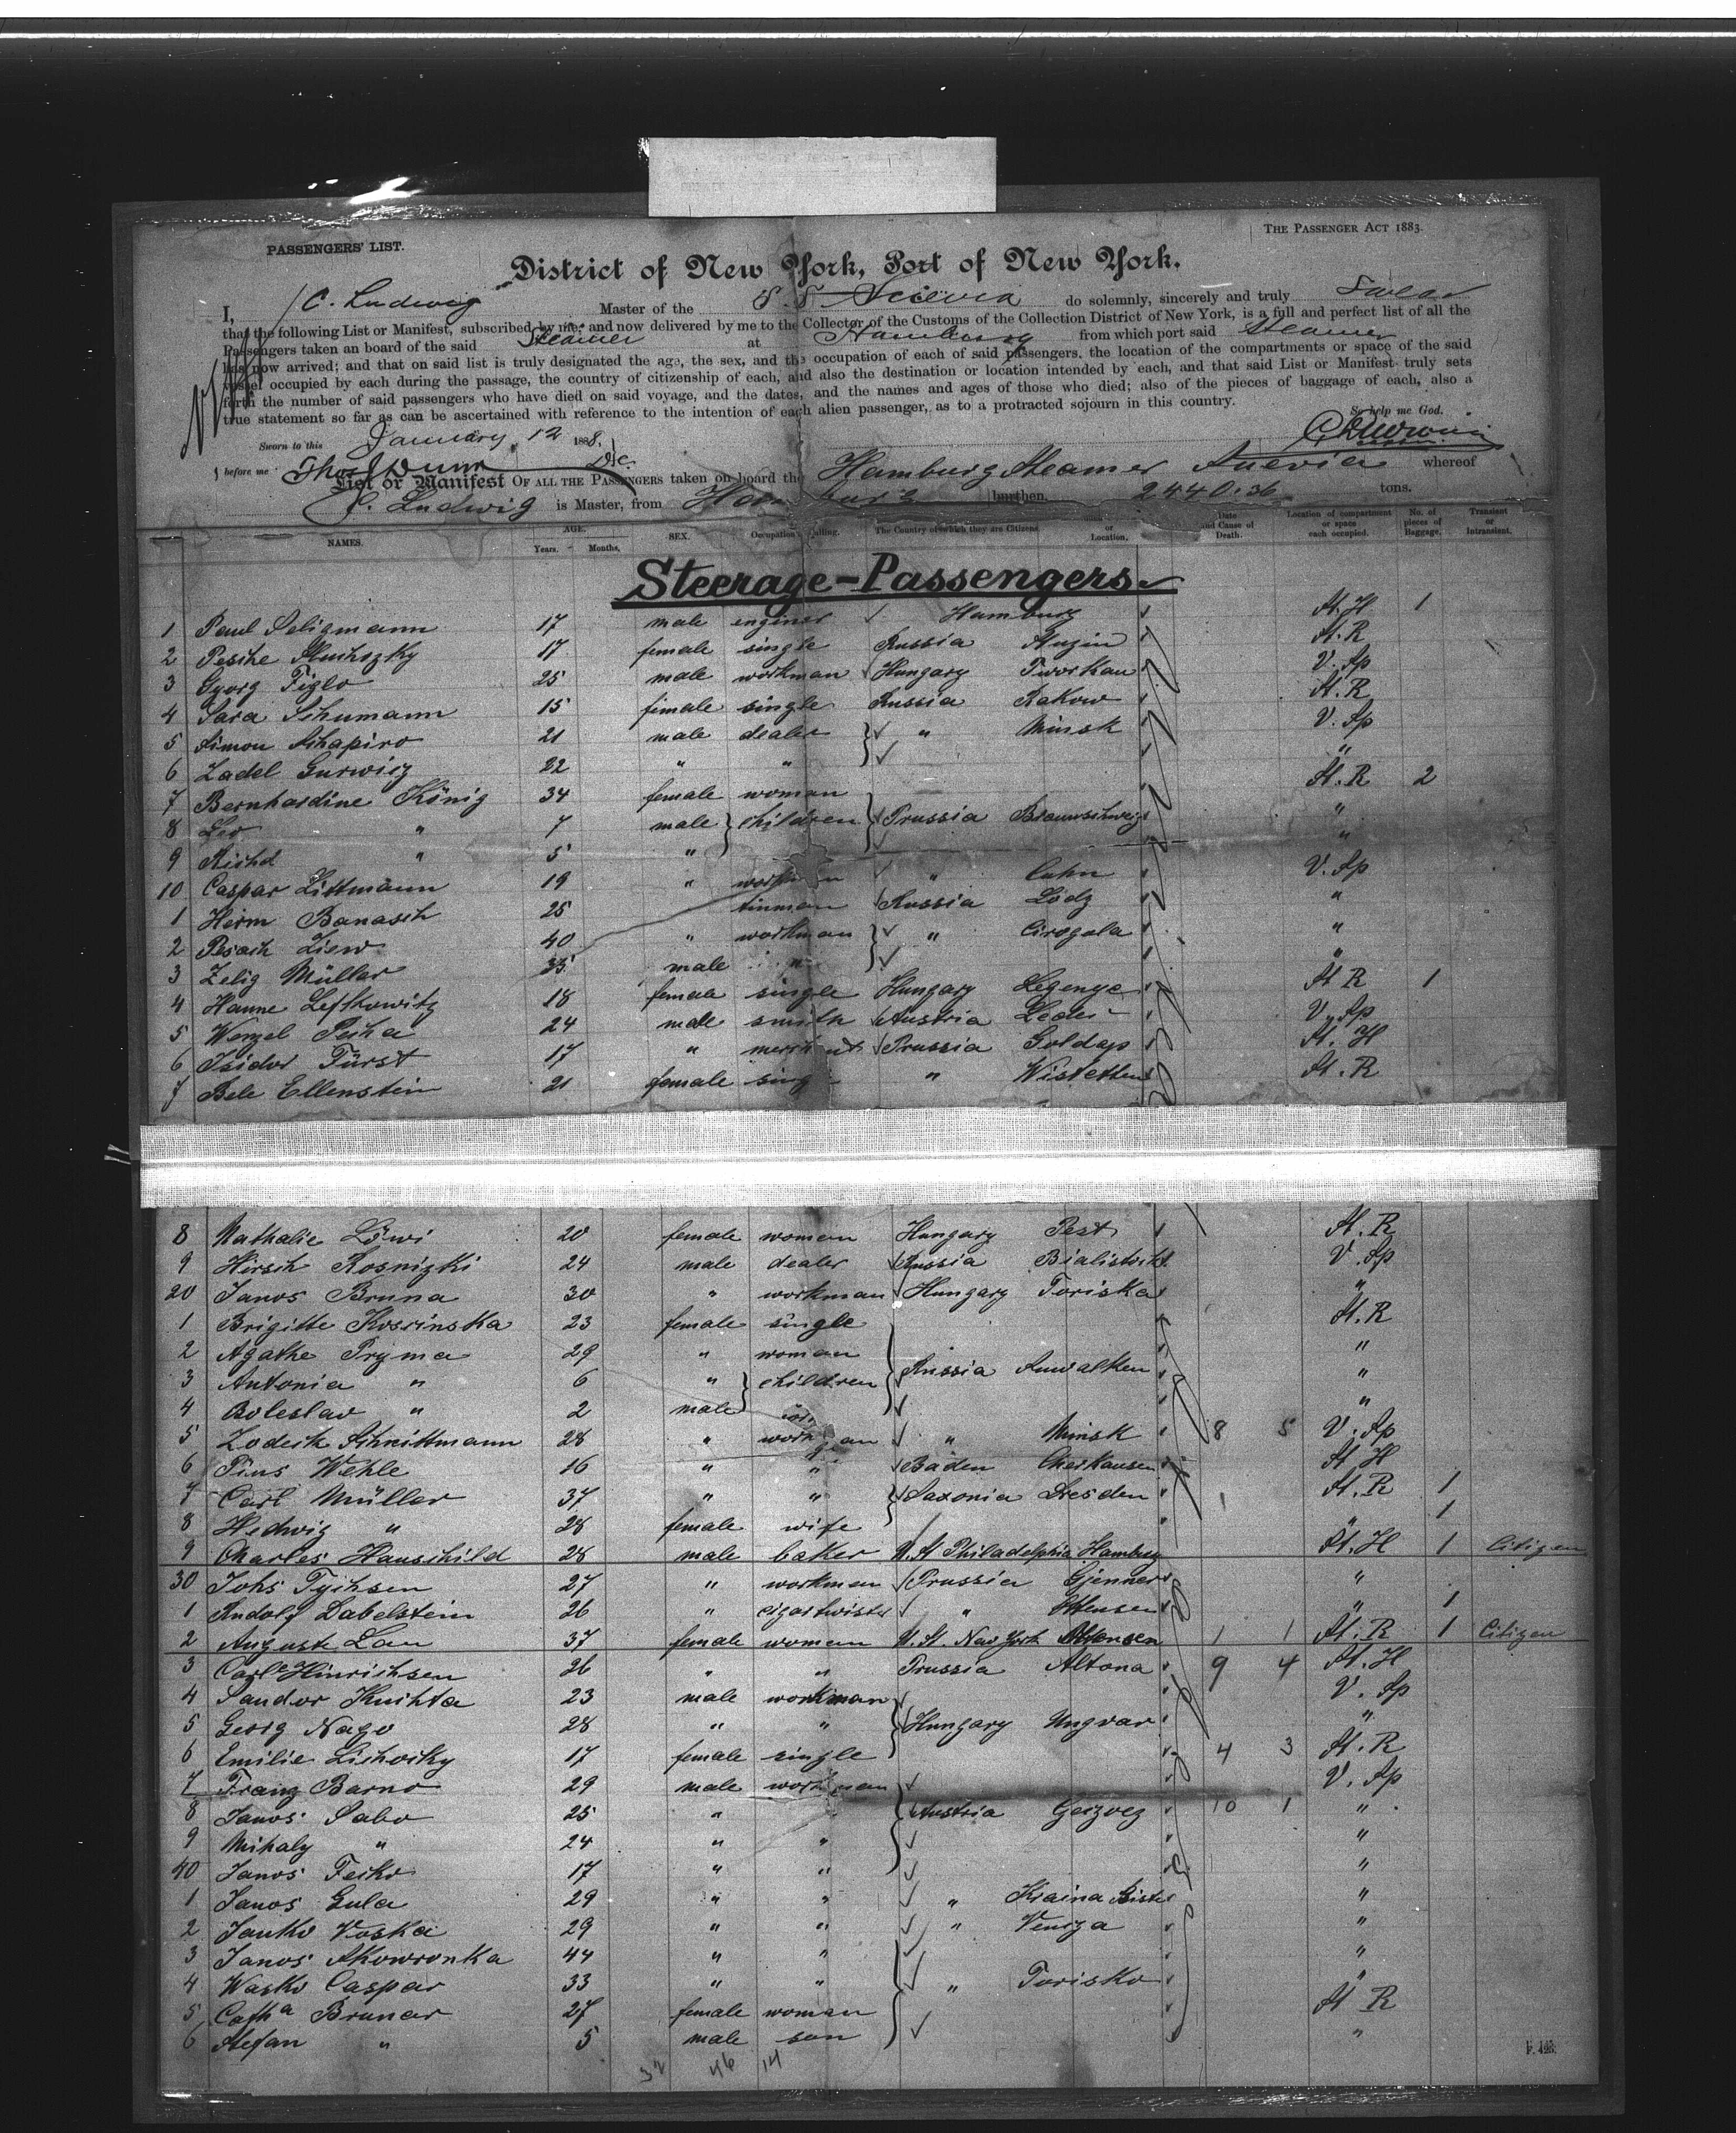 PASSENGERS' LIST.
THE PASSENGER ACT 1883.
District of New York, Port of New York.
I, C. Ludwig Master of the S.S. Suevia do solemnly, sincerely and truly Swear
that the following List or Manifest, subscribed by me, and now delivered by me to the Collector of the Customs of the Collection District of New York, is a full and perfect list of all the
Passengers taken on board of the said Steamer at Hamburg from which port said Steamer
has now arrived; and that on said list is truly designated the age, the sex, and the occupation of each of said passengers, the location of the compartments or space of the said
vessel occupied by each during the passage, the country of citizenship of each, and also the destination or location intended by each, and that said List or Manifest truly sets
forth the number of said passengers who have died on said voyage, and the dates, and the names and ages of those who died; also of the pieces of baggage of each, also a
true statement so far as can be ascertained with reference to the intention of each alien passenger, as to a protracted sojourn in this country.
So help me God.
Sworn to this January 12 1888.
C Ludwig
before me Thos Dunn
List or Manifest OF ALL THE PASSENGERS taken on board the Hamburg Steamer Suevia whereof
C. Ludwig is Master, from Hamburg burthen 2440.36 tons.
NAMES. AGE. Years. Months. SEX. Occupation Calling. The Country of which they are Citizens. or Location. Date and Cause of Death. Location of compartment or space each occupied. No. of pieces of Baggage. Transient or Intransient.
Steerage-Passengers
1 Paul Seligmann 17 male enginer Hamburg St. H 1
2 Pesche 17 female single Russia St. R
3 Gyorg Figlo 25 male workman Hungary Tworkau V. Sp
4 Sara Schumann 15 female single Russia Rakow St. R
5 Simon Schapiro 21 male dealer " Minsk V. Sp
6 Zadel Gurwicz 22 " " "
7 Bernhardine König 34 female woman St. R 2
8 Leo " 7 male children Prussia Braunschweig "
9 Richd " 5 " "
10 Caspar Littmann 19 " workman " V. Sp
1 Herm Banasch 25 tinman Russia Lodz "
2 Pesach Liew 40 " workman " Cirogola "
3 Zelig Müller 35 male " "
4 Hanne Lefkowitz 18 female single Hungary Legenye St R 1
5 Wenzel Pecha 24 male smith Austria V. Sp
6 Isidor Fürst 17 " merchant Prussia Goldap St. H
7 Bele Ellenstein 21 female single " St. R
8 Nathalie Löwi 20 female woman Hungary Pest St. R
9 Hirsch Rosnizki 24 male dealer Russia Bialistock V. Sp
20 Janos Bruna 30 " workman Hungary Toriska "
1 Brigitte Kosrinska 23 female single St. R
2 Agathe Pryma 29 " woman Russia Suwalken "
3 Antonia " 6 " children "
4 Boleslav " 2 male "
5 Zodeck Schnittmann 28 " workman " Minsk 8 5 V. Sp
6 Pius Wehle 16 " " Baden St H
7 Carl Müller 37 " " Saxonia Dresden 1 St. R 1
8 Hedwig " 28 female wife " 1
9 Charles Hauschild 28 male baker U. St Philadelphia Hamburg St. H 1 Citizen
30 Johs Tychsen 27 " workman Prussia Gjenner "
1 Rudolf Dabelstein 26 " cigartwister " Ottensen " 1
2 Auguste Lau 37 female woman U. St. New York Ottensen 1 1 St. R 1 Citizen
3 Carle Hinrichsen 26 " " Prussia Altona 9 4 St. H
4 Sandor Kuchta 23 male workman V. Sp
5 Georg Nago 28 " " Hungary Ungvar "
6 Emilie Lichovsky 17 female single 4 3 St. R
7 Franz Barno 29 male workman V. Sp
8 Janos Sabo 25 " " Austria 10 1 "
9 Mihaly " 24 " " "
40 Janos Fecko 17 " " "
1 Janos Gula 29 " " " "
2 Janko Voska 29 " " " "
3 Janos Skowronka 44 " " "
4 Wasko Caspar 33 " " " Torisko "
5 Catha Brunar 27 female woman St R
6 Stefan " 5 male son "
32 46 14